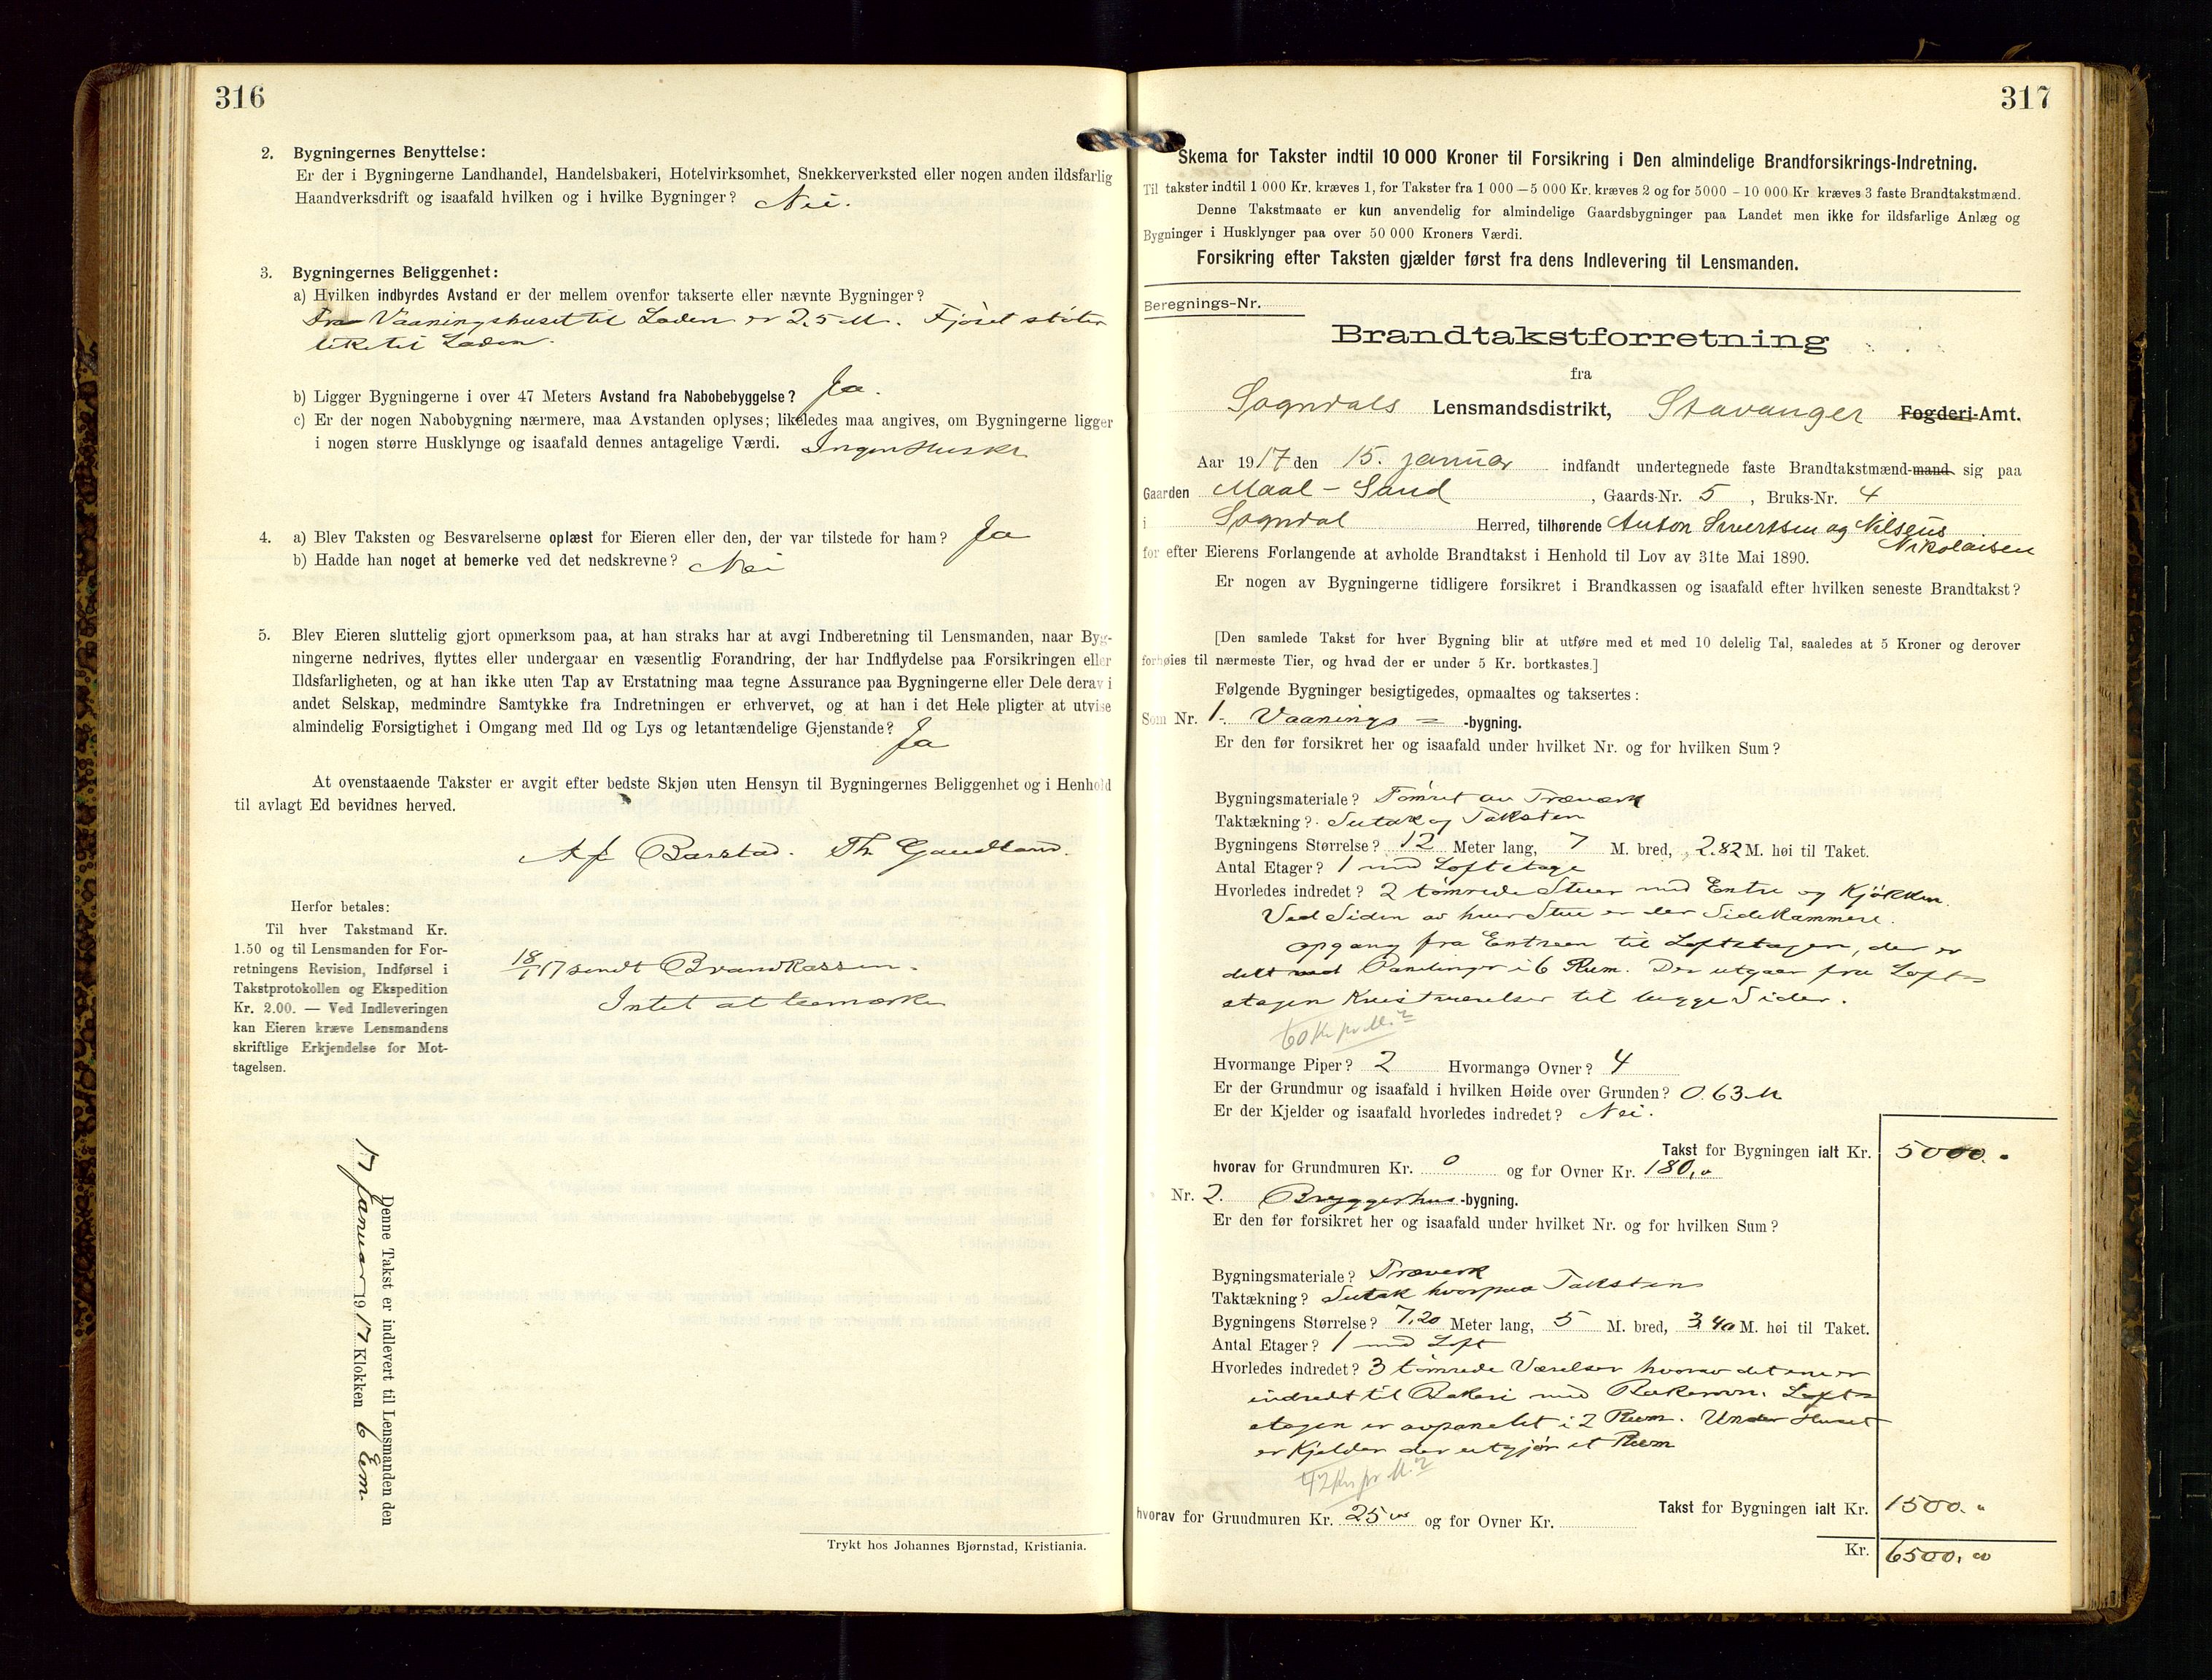 316
2. Bygningernes Benyttelse:
Er der i Bygningerne Landhandel, Handelsbakeri, Hotelvirksomhet, Snekkerverksted eller nogen anden ildsfarlig
Haandverksdrift og isaafald hvilken og i hvilke Bygninger? Nei.
3. Bygningernes Beliggenhet:
a) Hvilken indbyrdes Avstand er der mellem ovenfor takserte eller nævnte Bygninger?
Fra Vaaningshuset til Laden er 2,5 M. Fjöset stöter
like til Laden.
b) Ligger Bygningerne i over 47 Meters Avstand fra Nabobebyggelse? Ja.
c) Er der nogen Nabobygning nærmere, maa Avstanden oplyses; likeledes maa angives, om Bygningerne ligger
i nogen større Husklynge og isaafald dennes antagelige Værdi. Ingen Huskl
4. a) Blev Taksten og Besvarelserne oplæst for Eieren eller den, der var tilstede for ham? Ja
b) Hadde han noget at bemerke ved det nedskrevne? Nei
5. Blev Eieren sluttelig gjort opmerksom paa, at han straks har at avgi Indberetning til Lensmanden, naar Byg-
ningerne nedrives, flyttes eller undergaar en væsentlig Forandring, der har Indflydelse paa Forsikringen eller
Ildsfarligheten, og at han ikke uten Tap av Erstatning maa tegne Assurance paa Bygningerne eller Dele derav i
andet Selskap, medmindre Samtykke fra Indretningen er erhvervet, og at han i det Hele pligter at utvise
almindelig Forsigtighet i Omgang med Ild og Lys og letantændelige Gjenstande? Ja
At ovenstaaende Takster er avgit efter bedste Skjøn uten Hensyn til Bygningernes Beliggenhet og i Henhold
til avlagt Ed bevidnes herved.
Barstad. Th. Gaudland.
Herfor betales:
Til hver Takstmand Kr.
1.50 og til Lensmanden for For-
retningens Revision, Indførsel i
Takstprotokollen og Ekspedition
Kr. 2.00. — Ved Indleveringen
kan Eieren kræve Lensmandens
skriftlige Erkjendelse for Mot-
tagelsen.
18/1 17 sendt Brandkassen.
Intet at bemærke
Denne Takst er indlevert til Lensmanden den
17 Januar 1917 Klokken 6 Em.
Trykt hos Johannes Bjørnstad, Kristiania.
317
Skema for Takster indtil 10 000 Kroner til Forsikring i Den almindelige Brandforsikrings-Indretning.
Til takster indtil 1 000 Kr. kræves 1, for Takster fra 1 000 — 5 000 Kr. kræves 2 og for 5000 - 10 000 Kr. kræves 3 faste Brandtakstmænd.
Denne Takstmaate er kun anvendelig for almindelige Gaardsbygninger paa Landet men ikke for ildsfarlige Anlæg og
Bygninger i Husklynger paa over 50 000 Kroners Værdi.
Forsikring efter Taksten gjælder først fra dens Indlevering til Lensmanden.
Beregnings-Nr.
Brandtakstforretning
fra
Sogndals Lensmandsdistrikt, Stavanger Fogderi-Amt.
Aar 1917 den 15. januar indfandt undertegnede faste Brandtakstmænd-mand sig paa
Gaarden Maal - Sand, Gaards-Nr. 5, Bruks-Nr. 4
i Sogndal Herred, tilhørende Anton Sivertsen og Nilseus
Nikolaisen
for efter Eierens Forlangende at avholde Brandtakst i Henhold til Lov av 31te Mai 1890.
Er nogen av Bygningerne tidligere forsikret i Brandkassen og isaafald efter hvilken seneste Brandtakst?
[Den samlede Takst for hver Bygning blir at utføre med et med 10 delelig Tal, saaledes at 5 Kroner og derover
forhøies til nærmeste Tier, og hvad der er under 5 Kr. bortkastes.]
Følgende Bygninger besigtigedes, opmaaltes og taksertes:
Som Nr. 1. Vaanings = -bygning.
Er den før forsikret her og isaafald under hvilket Nr. og for hvilken Sum?
Bygningsmateriale? Tömret av Træværk
Taktækning? Sutak og Taksten
Bygningens Størrelse? 12 Meter lang, 7 M. bred, 2.82 M. høi til Taket.
Antal Etager? 1 med Loftetage
Hvorledes indredet? 2 tömrede Stuer med Entre og Kjökken.
Ved Siden av hver Stue er der Sidekammere.
Opgang fra Entreen til Loftetagen, der er
delt med Panelinger i 6 Rum. Der utgaar fra Loft=
etagen Kvistværelser til begge Sider.
60 Kr pr M.²
Hvormange Piper? 2 Hvormange Ovner? 4
Er der Grundmur og isaafald i hvilken Høide over Grunden? 0.63 M
Er der Kjelder og isaafald hvorledes indredet? Nei.
Takst for Bygningen ialt Kr. 5000.
hvorav for Grundmuren Kr. 0 og for Ovner Kr. 180,"
Nr. 2. Bryggerhus -bygning.
Er den før forsikret her og isaafald under hvilket Nr. og for hvilken Sum?
Bygningsmateriale? Træverk
Taktækning? Sutak hvorpaa Taksten
Bygningens Størrelse? 7,20 Meter lang, 5 M. bred, 3.40 M. høi til Taket.
Antal Etager? 1 med Loft
Hvorledes indredet? 3 tömrede Værelser hvorav det ene er
indredt til Bakeri med Bakerovn. Loft=
etagen er avpanelet i 2 Rum. Under Huset
er Kjelder der utgjör et Rum
42 Kr pr M.²
Takst for Bygningen ialt Kr. 1500.
hvorav for Grundmuren Kr. 25 og for Ovner Kr.
Kr. 6500,00